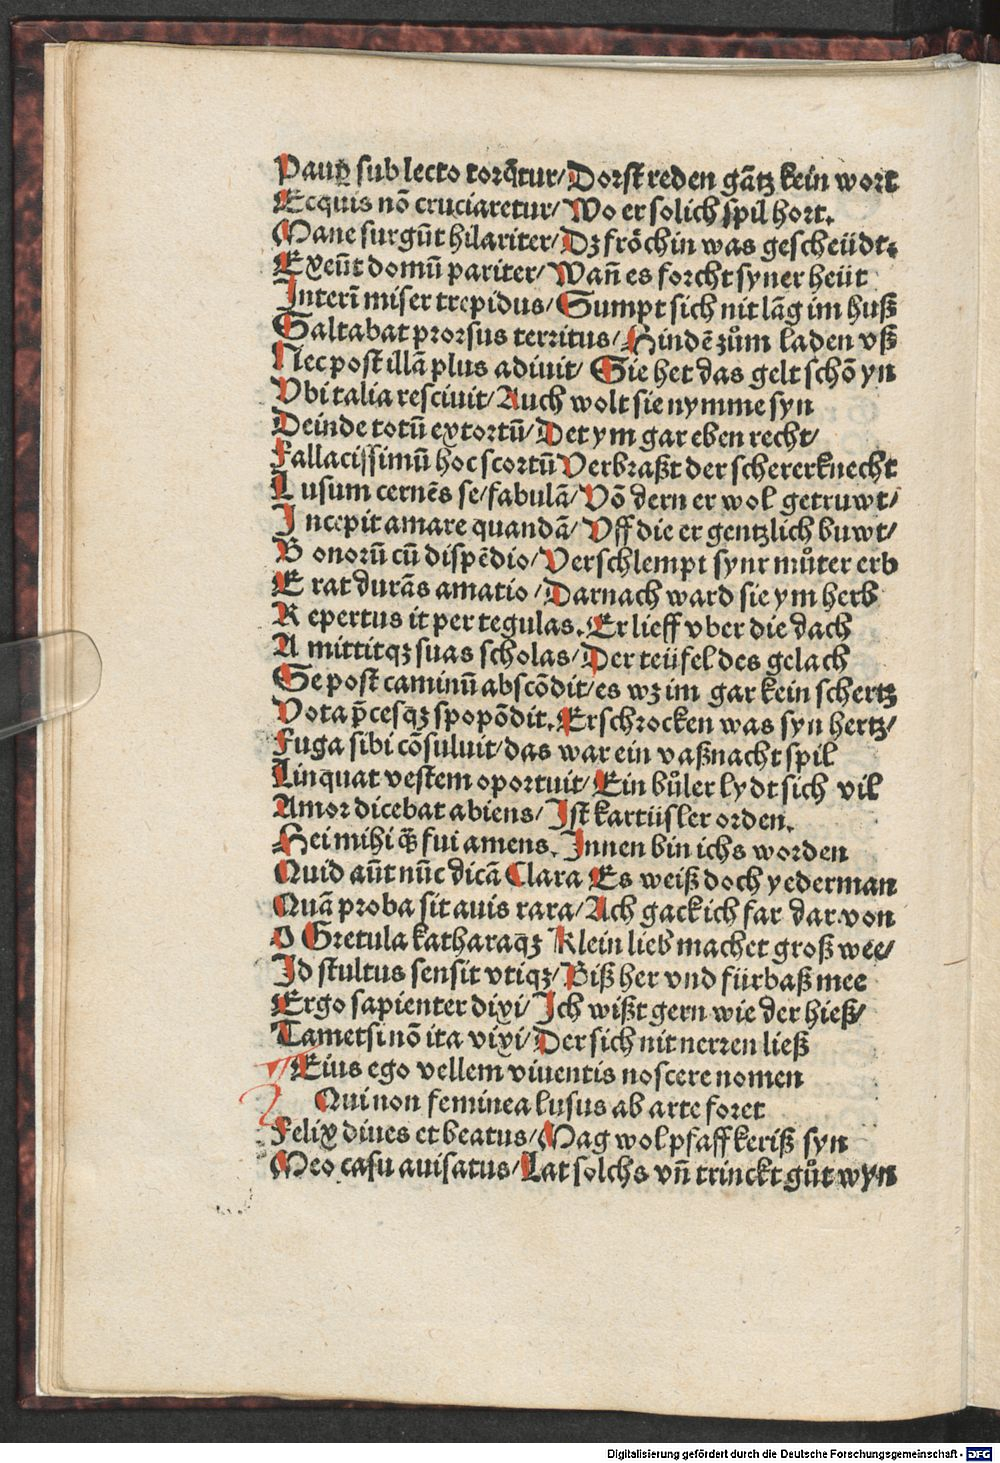 Paup̲ sub lecto torq̄tur/ Dorst reden gātz kein wort
Ecquis nō cruciaretur/ Wo er solich spil hort.
Mane surgūt hilariter/ Dz fröchin was gescheüdt.
Exeūt domū pariter/ Wañ es forcht syner heüt
Interī miser trepidus/ Sumpt sich nit lāg im huß
Saltabat prorsus territus/ Hindē zům laden vß
Nec post illā plus adiuit/ Sie het das gelt schō yn
Vbi talia resciuit/ Auch wolt sie nymme syn
Deinde totū extortū/ Det ym gar eben recht/
Fallacissimū hoc scortū Verbraßt der schererknecht
Lusum cernēs se/ fabulā/ Vō dern er wol getruwt/
Incepit amare quandā/ Vff die er gentzlich buwt/
Bonorū cū dispēdio/ Verschlempt synr můter erb
Erat durās amatio/ Darnach ward sie ym herb
Repertus it per tegulas. Er lieff vber die dach
Amittitqz suas scholas/ Der teüfel des gelach
Se post caminū abscōdit/ es wz im gar kein schertz
Vota p̄cesqz spopōdit. Erschrocken was syn hertz/
Fuga sibi cōsuluit/ das war ein vaßnacht spil
Linquat vestem oportuit/ Ein bůler lydt sich vil
Amor dicebat abiens/ Ist kartüsler orden.
Hei mihi q̄ fui amens. Innen bin ichs worden
Quid aūt nūc dicā Clara Es weiß doch yederman
Quā proba sit auis rara/ Ach gack ich far dar von
O Gretula katharaqz Klein lieb machet groß wee/
Id stultus sensit vtiqz/ Biß her vnd fürbaß mee
Ergo sapienter dixi/ Ich wißt gern wie der hieß/
Tametsi nō ita vixi/ Der sich nit nerren ließ
Eius ego vellem viuentis noscere nomen
Qui non feminea lusus ab arte foret
Felix diues et beatus/ Mag wol pfaff keriß syn
Meo casu auisatus/ Lat solchs vñ trinckt gůt wyn
Digitalisierung gefördert durch die Deutsche Forschungsgemeinschaft - DFG